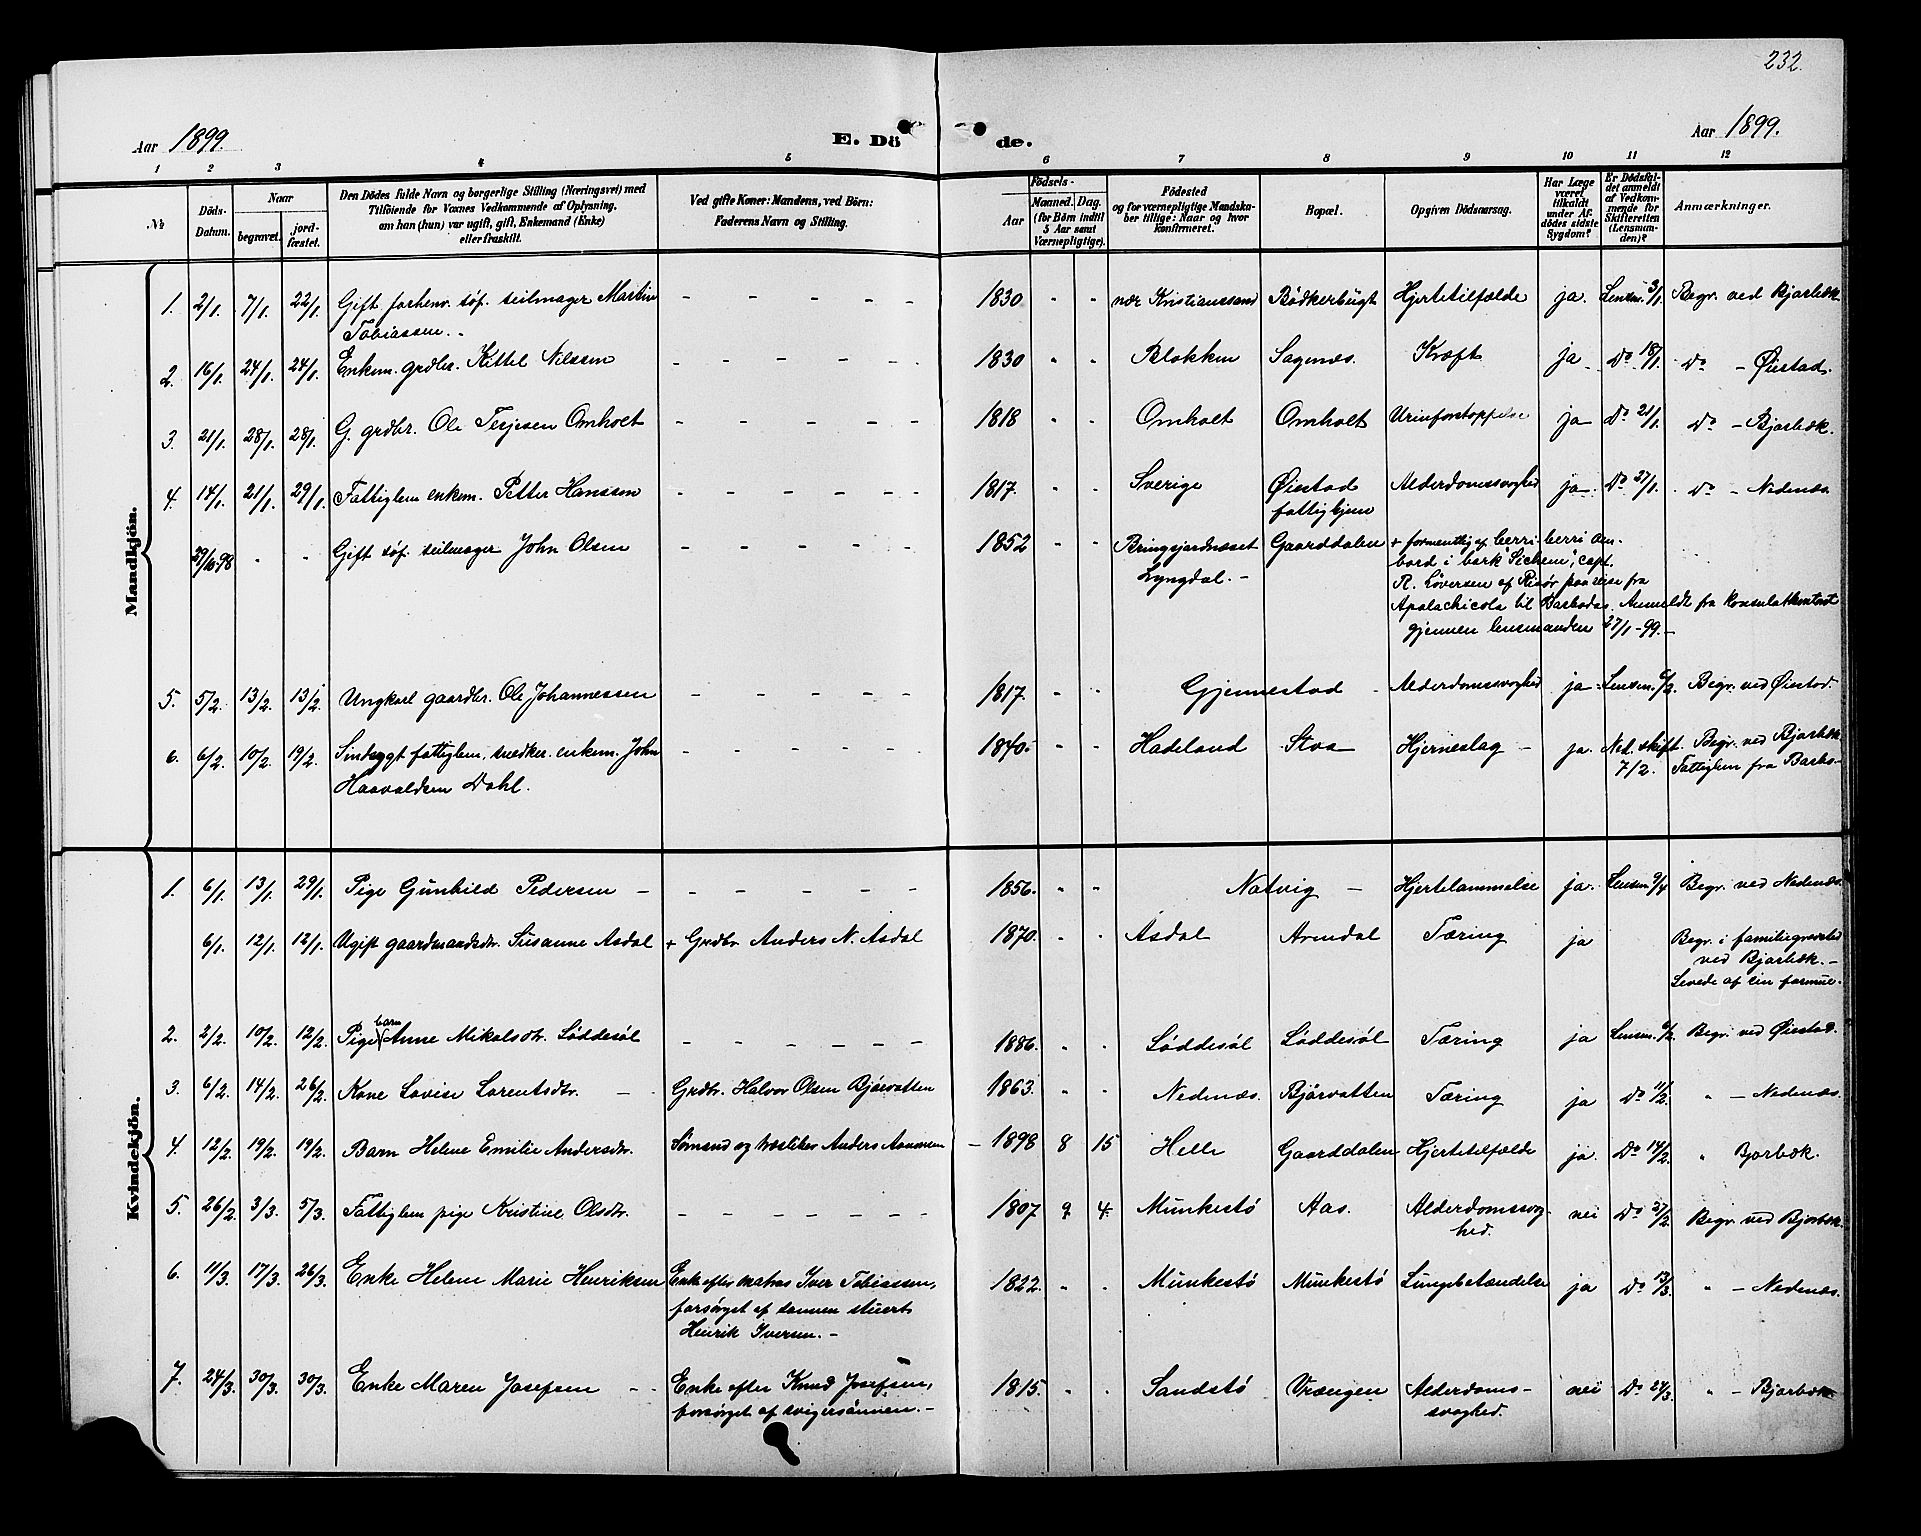 232.
Aar 1899.
E. Dö
de.
Aar 1899.
1 2 3 4 5 6 7 8 9 10 11 12
No
Döds-Datum.
Naar begravet. jordfæstet.
Den Dödes fulde Navn og borgerlige Stilling (Næringsvei) med
Tilföiende for Voxnes Vedkommende af Oplysning,
om han (hun) var ugift, gift, Enkemand (Enke)
eller fraskilt.
Ved gifte Koner: Mandens, ved Börn:
Faderens Navn og Stilling.
Födsels-
Aar Maaned. Dag.
(for Börn indtil
5 Aar samt
Værnepligtige).
Födested
og for værnepligtige Mandska-
ber tillige: Naar og hvor
konfirmeret.
Bopæl.
Opgiven Dödsaarsag.
Har Læge
været
tilkaldt
under Af-
dödes sidste
Sygdom?
Er Dödsfal-
det anmeldt
af Vedkom-
mende for
Skifteretten
(Lensman-
den)?
Anmærkninger.
Mandkjön.
1. 2/1. 7/1. 22/1. Gift forhenv. söf. seilmager Martin - - - - - 1830 " " nær Kristianssand Bödkerbugt Hjertetilfælde ja. Lensm. 3/1. Begr. ved Bjorbæk
Tobiassen. -
2. 16/1. 24/1. 24/1. Enkem. grdbr. Kittel Nilssen - - - - - 1830 " " Blokken Sagenæs. Kræft ja Do 18/1. Do - Øiestad.
3. 21/1. 28/1. 28/1. G. grdbr. Ole Terjesen Omholt - - - - - 1818 " " Omholt Omholt Urinforstoppelse ja Do 21/1. Do - Bjorbæk.
4. 14/1. 21/1. 29/1. Fattiglem enkem. Petter Hanssen - - - - - 1817. " " Sverige Øiestad Alderdomssvaghed ja. Do 27/1. Do - Nedenæs.
fattighjem
29/10-98 " " Gift söf. seilmager John Olsen - - - - - 1852 " " Bringsjordnæsset Gaarddalen + formentlig af berri berri om-
Lyngdal. - bord i bark "Sichem", capt.
R. Löversen af Risör paa reise fra
Apalachicola til Barbados. Anmeldt fra Konsulatkontoret
gjennem lensmanden 27/1-99. -
5. 5/2. 13/2. 13/2. Ungkarl gaardbr. Ole Johannessen - - - - - 1817. " " Gjennestad - Alderdomssvaghed ja Lensm. 6/2. Begr. ved Øiestad.
6. 6/2. 10/2. 19/2. Sindsygt fattiglem, snedker. enkem. John - - - - - 1840. " " Hadeland Stoa Hjerneslag - ja. Ned. skift. Begr. ved Bjorbæk
Haavaldsen Dahl. 7/2. Fattiglem fra Barbo-
Kvindekjön.
1. 6/1. 13/1. 29/1. Pige Gunhild Pedersen - - - - - - 1856. " " Natvig - Hjertelammelse ja. Lensm. 9/1 Begr. ved Nedenæs.
6/1. 12/1. 12/1. Ugift gaardmandsdtr. Susanne Asdal + Grdbr Anders N. Asdal 1870. " " Asdal Arendal Tæring ja Begr. i familiegravsted
ved Bjorbæk. -
Levede af sin formue.
2. 2/2. 10/2. 12/2. Pigebarn Anne Mikalsdtr. Löddesöl - - - - - - 1886. " " Löddesöl Löddesöl Tæring ja Lensm. 6/2. Begr. ved Øiestad.
3. 6/2. 14/2. 26/2. Kone Lovise Lorentsdtr. - Grdbr. Halvor Olsen Bjórvatten 1863. " " Nedenæs. Bjórvatten Tæring ja Do 11/2. " - Nedenæs.
4. 12/2. 19/2. 19/2. Barn Helene Emilie Andersdtr. Sömand og Anders - 1898 8 15 Helle Gaarddalen Hjertetilfælde ja. Do 14/2. " Bjorbæk.
5. 26/2 3/3. 5/3. Fattiglem pige Kristine Olsdtr. - - - - - - 1807 9 4. Munkestö Aas. Alderdomssvag- nei Do 27/2. Begr. ved Bjorbæk.
hed.
6. 11/3. 17/3. 26/3. Enke Helene Marie Henriksen Enke efter matros Iver Tobiassen, 1822. " " Munkestö Munkestö Lungebetændelse ja Do 13/3. " - Nedenæs.
forsörget af sönnen stuert
Henrik Iversen. -
7. 24/3. 30/3. 30/3. Enke Maren Josefsen - - Enke efter Knud Josefsen, 1815. " " Sandstö Vrængen Alderdoms- nei Do 27/3. " - Bjorbæk
forsörget af svigersönnen. - svaghed.